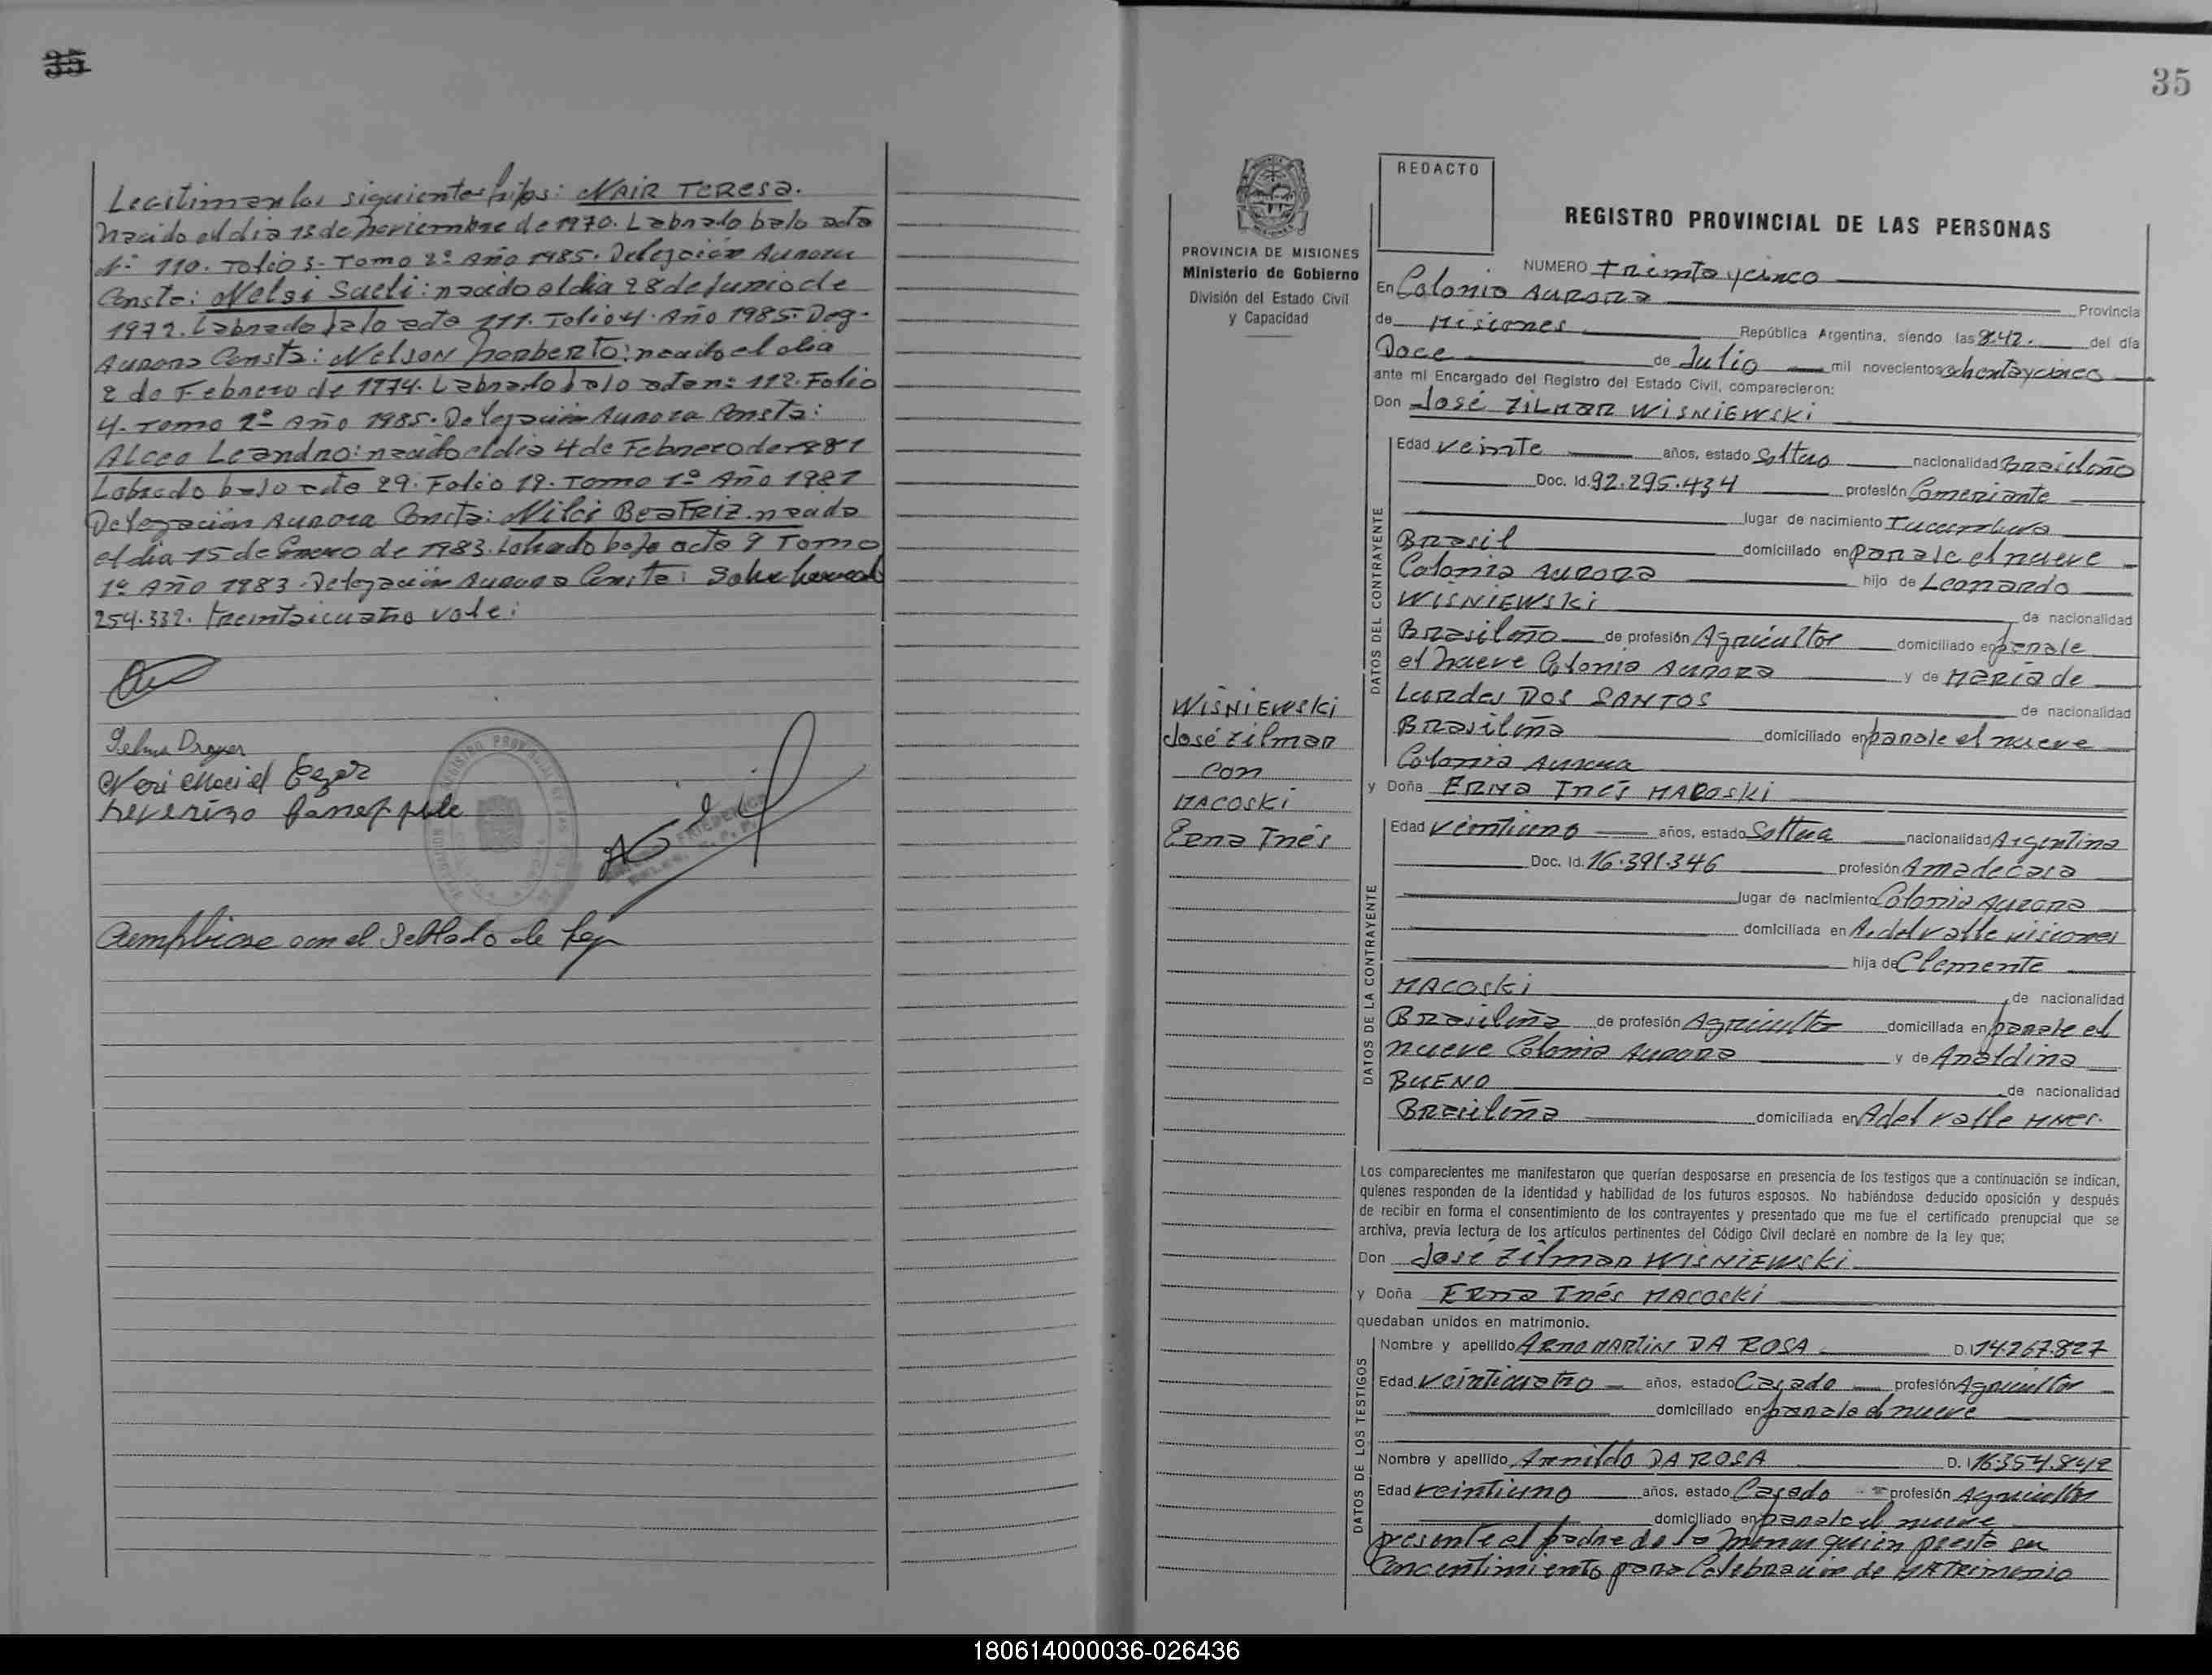 35
Legitiman los siguientes hijos: NAIR TERESA.
Nacido el dia 13 de Noviembre de 1970. Labrado bajo acta
N° 110. Folio 3. Tomo 2º Año 1985. Delegación Aurora
Consta: Nelsi Sueli: nacido el dia 28 de Junio de
1972. Labrado bajo acta 111. Folio 4. Año 1985. Deg.
Aurora Consta: Nelson Norberto: nacido el dia
2 de Febrero de 1974. Labrado bajo acta n: 112. Folio
4. Tomo 2º Año 1985. Delegación Aurora Consta:
Alceo Leandro: nacido el dia 4 de Febrero de 1981
Labrado bajo acta 29. Folio 19. Tomo 1º Año 1981
Delegación Aurora Consta: Nilci Beatriz. nacida
el dia 15 de Enero de 1983. Labrado bajo acta 9 Tomo
1º Año 1983. Delegación Aurora Consta:
254.332. treintaicuatro vale:
Selma Dreyer
Neri Maciel
Severino
Cumplicase con el Sellado de Ley
35
PROVINCIA DE MISIONES
Ministerio de Gobierno
División del Estado Civil
y Capacidad
REDACTO
REGISTRO PROVINCIAL DE LAS PERSONAS
NUMERO treinta y cinco
En Colonia Aurora Provincia
de Misiones República Argentina, siendo las 8.42. del día
Doce de Julio mil novecientos ochenta y cinco
ante mi Encargado del Registro del Estado Civil, comparecieron:
Don José Zilmar WISNIEWSKI
DATOS DEL CONTRAYENTE
Edad veinte años, estado Soltero nacionalidad Brasileño
Doc. Id. 92.295.434 profesión Comerciante
lugar de nacimiento
Brasil domiciliado en paraje el nueve
Colonia Aurora hijo de Leonardo
WISNIEWSKI de nacionalidad
Brasileño de profesión Agricultor domiciliado en paraje
el nueve Colonia Aurora y de María de
Lurdes DOS SANTOS de nacionalidad
Brasileña domiciliado en paraje el nueve
Colonia Aurora
WISNIEWSKI
José Zilmar
con
MACOSKI
Erna Inés
y Doña Erna Inés MACOSKI
DATOS DE LA CONTRAYENTE
Edad veintiuno años, estado Soltera nacionalidad Argentina
Doc. Id. 16.391.346 profesión Ama de casa
lugar de nacimiento Colonia Aurora
domiciliada en A. del Valle Misiones
hija de Clemente
MACOSKI de nacionalidad
Brasileña de profesión Agricultor domiciliada en paraje el
nueve Colonia Aurora y de Analdina
BUENO de nacionalidad
Brasileña domiciliada en A del Valle Mnes.
Los comparecientes me manifestaron que querían desposarse en presencia de los testigos que a continuación se indican,
quienes responden de la identidad y habilidad de los futuros esposos. No habiéndose deducido oposición y después
de recibir en forma el consentimiento de los contrayentes y presentado que me fue el certificado prenupcial que se
archiva, previa lectura de los artículos pertinentes del Código Civil declaré en nombre de la ley que;
Don José Zilmar WISNIEWSKI
y Doña Erna Inés MACOSKI
quedaban unidos en matrimonio.
DATOS DE LOS TESTIGOS
Nombre y apellido Arno MARTIN DA ROSA D.I 14.267.827
Edad veinticuatro años, estado Casado profesión Agricultor
domiciliado en paraje el nueve
Nombre y apellido Arnildo DA ROSA D. I 16.354.842
Edad veintiuno años, estado Casado profesión Agricultor
domiciliado en paraje el nueve
presente el padre de la menor quien presta su
Concentimiento para Celebración de Matrimonio
180614000036-026436